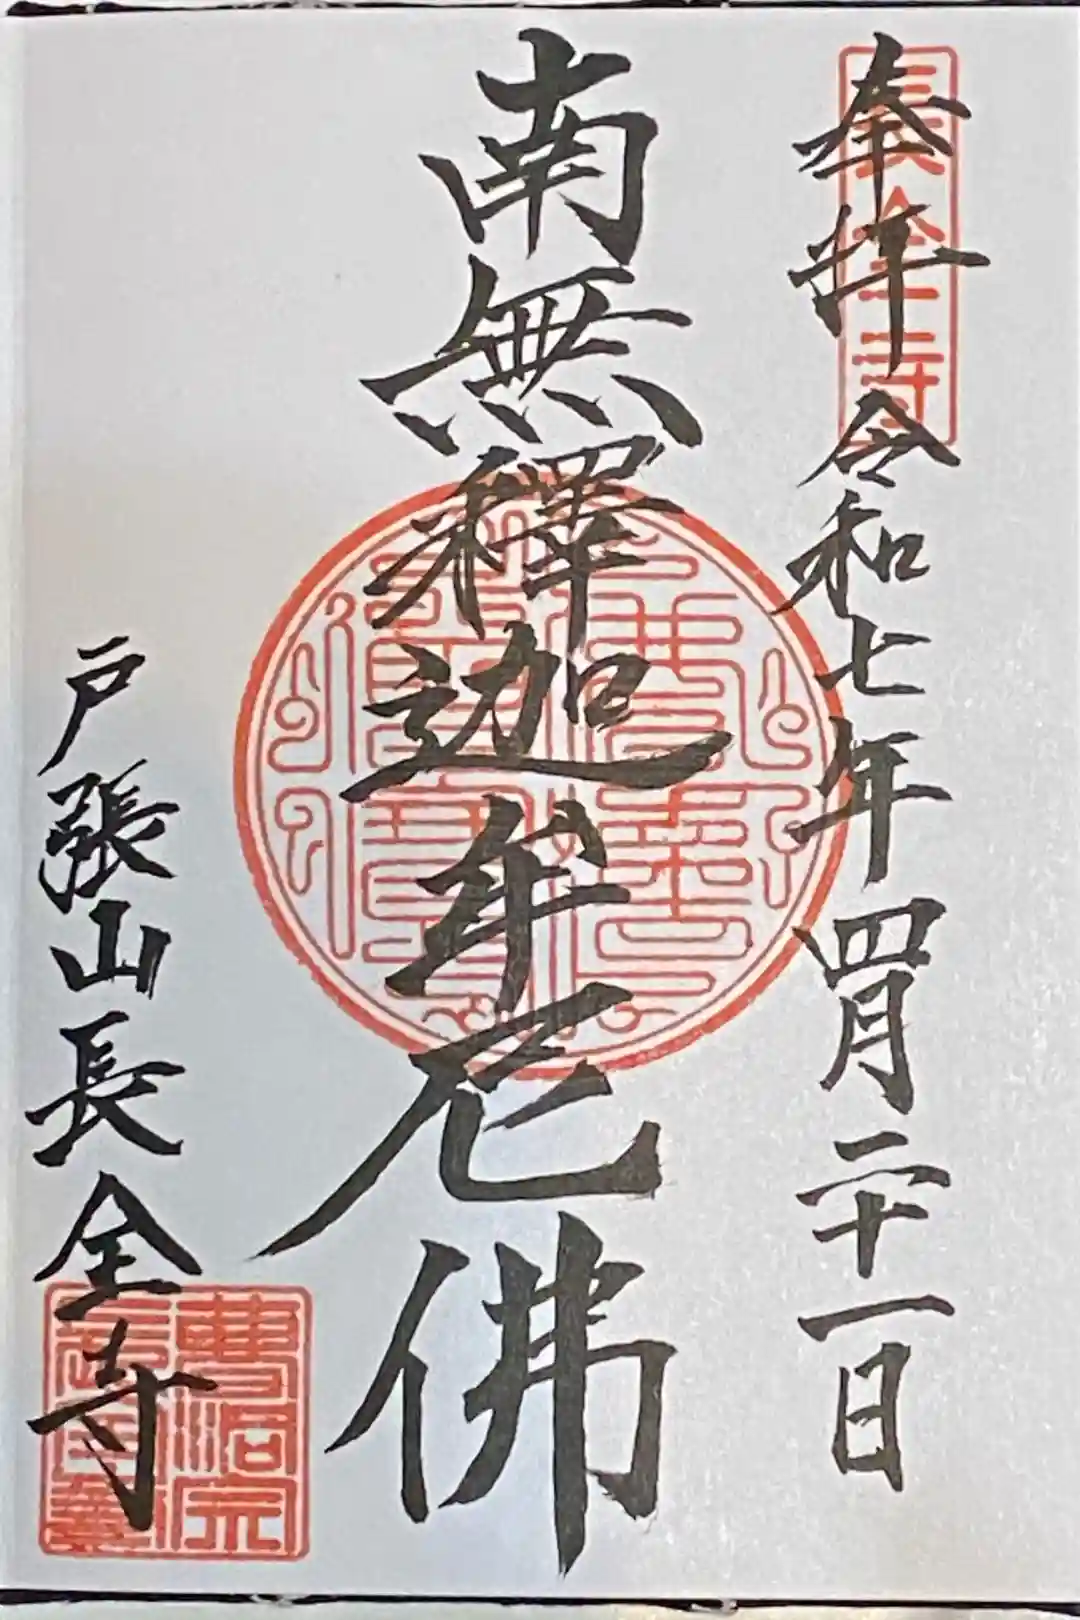 奉拝 令和七年四月二十一日
長全寺
南無釋迦牟尼佛
戸張山長全寺
曹洞宗